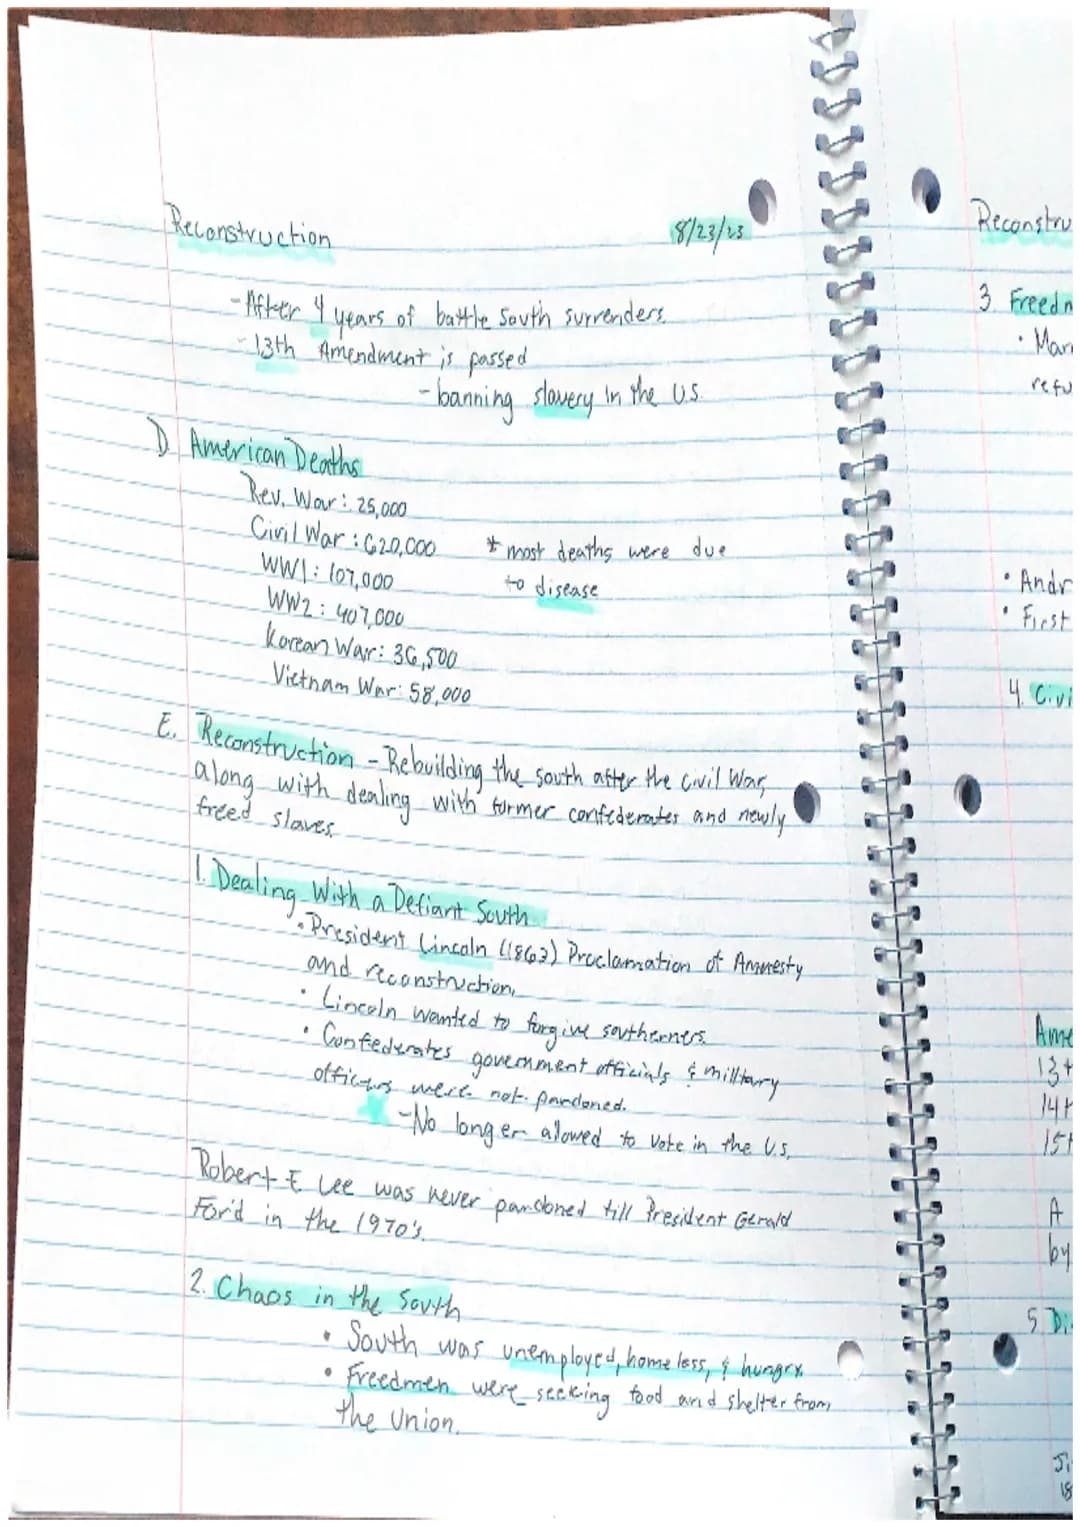 Reconstruction 8/23/23
- After 4 years of battle South surrenders.
- 13th Amendment is passed
- banning slavery in the U.S.
D. American Deaths
Rev. War: 25,000
Civil War: 620,000 * most deaths were due
to disease
WW1: 107,000
WW2: 407,000
Korean War: 36,500
Vietnam War: 58,000
E. Reconstruction - Rebuilding the south after the Civil War,
along with dealing with former confederates and newly
freed slaves.
1. Dealing With a Defiant South
• President Lincoln (1863) Proclamation of Amnesty
and reconstruction.
• Lincoln wanted to forgive southerners.
• Confederates government officials & military
officers were not pardoned.
- No longer allowed to vote in the U.S.
Robert E Lee was never pardoned till President Gerald
Ford in the 1970's.
2. Chaos in the South
• South was unemployed, homeless, & hungry.
• Freedmen were seeking food and shelter from
the Union.
Reconstru
3. Freedm
• Mar
refu
• Andr
• First
4. Civi
Ame
13t
14t
15t
A
by
5. Di
Ji
18